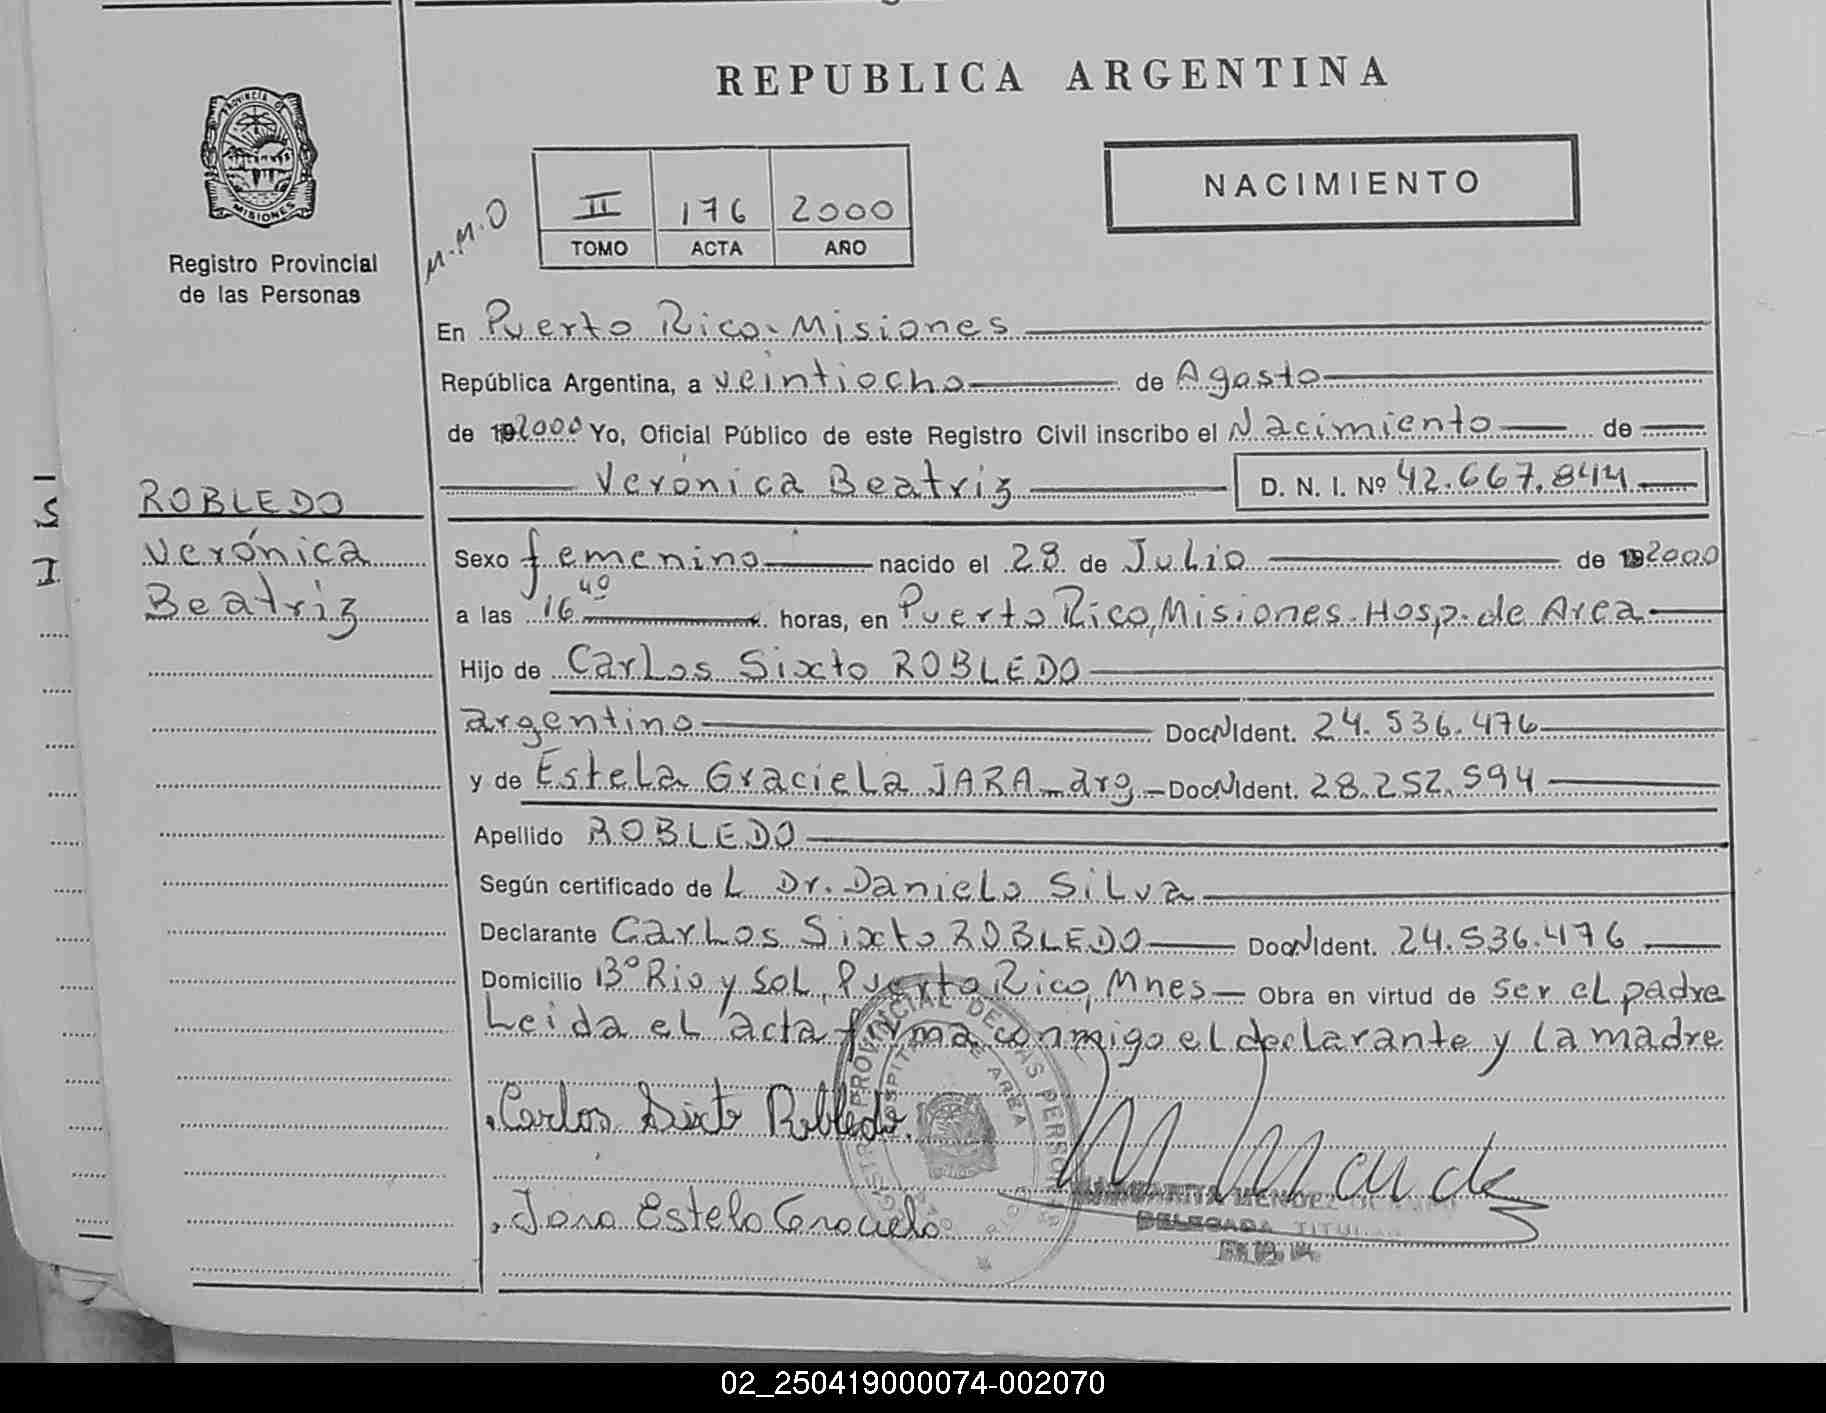 REPUBLICA ARGENTINA
PROVINCIA DE
MISIONES
Registro Provincial
de las Personas
M.M.O
II 176 2000
TOMO ACTA AÑO
NACIMIENTO
En Puerto Rico. Misiones
República Argentina, a veintiocho de Agosto
de 2000 Yo, Oficial Público de este Registro Civil inscribo el Nacimiento de
Verónica Beatriz D. N. I. Nº 42.667.844
ROBLEDO
Verónica
Beatriz
Sexo femenino nacido el 28 de Julio de 2000
a las 16 40 horas, en Puerto Rico, Misiones. Hosp. de Area
Hijo de Carlos Sixto ROBLEDO
argentino Doc N Ident. 24.536.476
y de Estela Graciela JARA - arg - Doc N Ident. 28.252.594
Apellido ROBLEDO
Según certificado de L Dr. Danielo Silva
Declarante Carlos Sixto ROBLEDO Doc N Ident. 24.536.476
Domicilio Bº Rio y Sol, Puerto Rico, Mnes - Obra en virtud de ser el padre
Leida el acta firma conmigo el declarante y la madre
Carlos Sixto Robledo.
Jara Estela Graciela
PROVINCIAL DE LAS PERSONAS
HOSPITAL DE AREA
MARGARITA MENDEZ
DELEGADA TITULAR
02_250419000074-002070